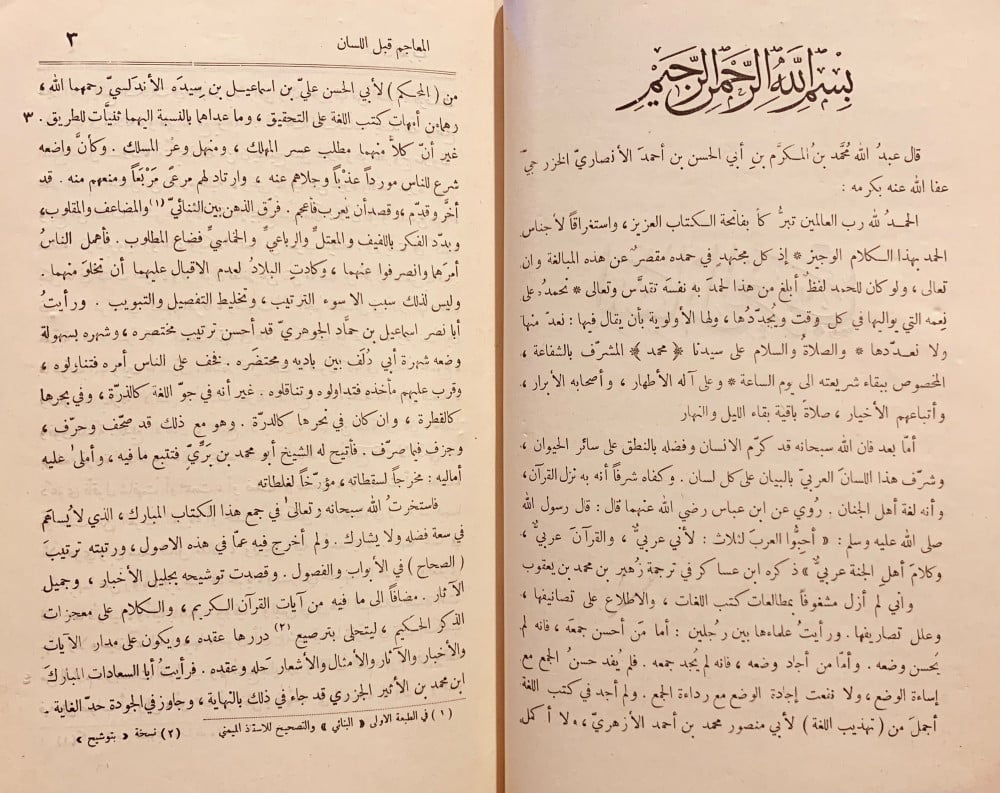 بسم الله الرحمن الرحيم
قال عبدُ الله مُحَمَّد بنُ المكرَّم بنِ أبي الحسن بن أحمدَ الأنصاريّ الخزرجيّ
عفا الله عنه بكرمه :
الحمدُ لله رب العالمين تبرُّكاً بفاتحة الكتاب العزيز، واستغراقاً لأجناس
الحمد بهذا الكلام الوجيز * إذ كل مجتهدٍ في حمده مقصرٌ عن هذه المبالغة وان
تعالى ، ولو كان للحمد لفظٌ أبلغ من هذا لحمدَ به نفسَه تقدَّس وتعالى * نحمدُه على
نِعمه التي يواليها في كل وقت ويُجدّدُها ، ولها الأولوية بأن يقال فيها : نعدّ منها
ولا نعدّدها * والصلاةُ والسلام على سيدنا ﴿ محمد ﴾ المشرّف بالشفاعة ،
المخصوص ببقاء شريعته الى يوم الساعة * وعلى آله الأطهار ، وأصحابه الأبرار ،
وأتباعهم الأخيار ، صلاةً باقية بقاء الليل والنهار
أمّا بعد فان الله سبحانه قد كرّم الانسان وفضله بالنطق على سائر الحيوان ،
وشرّف هذا اللسانَ العربيّ بالبيان على كل لسان . وكفاه شرفاً أنه به نزل القرآن،
وأنه لغة أهل الجنان . رُوي عن ابن عباس رضي الله عنهما قال : قال رسول الله
صلى الله عليه وسلم : « أحِبُّوا العربَ لثلاث : لأني عربيٌّ ، والقرآن عربيٌّ ،
وكلامَ أهل الجنة عربيٌّ » ذكره ابن عساكر في ترجمة زُهير بن محمد بن يعقوب
واني لم أزل مشغوفاً بمطالعات كتب اللغات ، والاطلاع على تصانيفها ،
وعلل تصاريفها . ورأيتُ علماءها بين رجلين : أما مَن أحسن جمعَه ، فانه لم
يُحسن وضعه . وأمّا من أجاد وضعه ، فانه لم يُجِد جمعه . فلم يُفد حسنُ الجمع مع
إساءة الوضع ، ولا نفعت إجادة الوضع مع رداءة الجمع . ولم أجد في كتب اللغة
أجملَ من ( تهذيب اللغة ) لأبي منصور محمد بن أحمد الأزهريّ ، ولا أكمل
المعاجم قبل اللسان ٣
من ( المحكم ) لأبي الحسن عليّ بن اسماعيل بن سِيدَه الأندلسيّ رحمهما الله ،
وهما من أمهات كتب اللغة على التحقيق ، وما عداهما بالنسبة اليهما ثنيّات للطريق . ٣
غير أنّ كلاًّ منهما مطلب عسر المهلك ، ومنهل وعرُ المسلك . وكأنَّ واضعه
شرع للناس مورداً عذباً وجلاهم عنه ، وارتاد لهم مرعىً مَرْبَعاً ومنعهم منه . قد
أخّر وقدّم ، وقصد أن يُعرب فأعجم . فرّق الذهن بين الثنائيّ (١) والمضاعف والمقلوب،
وبدّد الفكر باللفيف والمعتلّ والرباعيّ والخماسيّ فضاع المطلوب . فأهمل الناسُ
أمرَهما وانصرفوا عنهما ، وكادت البلادُ لعدم الاقبال عليهما أن تخلوَ منهما .
وليس لذلك سبب الا سوء الترتيب ، وتخليط التفصيل والتبويب . ورأيتُ
أبا نصر اسماعيل بن حمّاد الجوهريّ قد أحسن ترتيب مختصره ، وشهره بسهولة
وضعه شهرة أبي دُلَف بين باديه ومحتضَره . فخف على الناس أمره فتناولوه ،
وقرب عليهم مأخذه فتداولوه وتناقلوه . غير أنه في جوّ اللغة كالذرّة ، وفي بحرها
كالقطرة ، وان كان في نحرها كالدرّة . وهو مع ذلك قد صحّف وحرّف ،
وجزف فيما صرّف . فأتيح له الشيخ أبو محمد بن برّيّ فتتبع ما فيه ، وأملى عليه
أماليه : مخرجاً لسقطاته ، مؤرّخاً لغلطاته
فاستخرتُ الله سبحانه وتعالى في جمع هذا الكتاب المبارك، الذي لا يُساهَم
في سعة فضله ولا يشارك . ولم أخرج فيه عمّا في هذه الاصول ، ورتبته ترتيبَ
( الصحاح ) في الأبواب والفصول . وقصدت توشيحه بجليل الأخبار ، وجميل
الآثار . مضافاً الى ما فيه من آيات القرآن الكريم ، والكلام على معجزات
الذكر الحكيم ، ليتحلى بترصيع (٢) دررها عقده ، ويكون على مدار الآيات
والأخبار والآثار والأمثال والأشعار حَله وعقده . فرأيتُ أبا السعادات المباركَ
ابن محمد بن الأثير الجزري قد جاء في ذلك بالنهاية ، وجاوز في الجودة حدّ الغاية .
( ١ ) في الطبعة الاولى « البنائي » والتصحيح للاستاذ الميمني (٢) نسخة « بتوشيح »